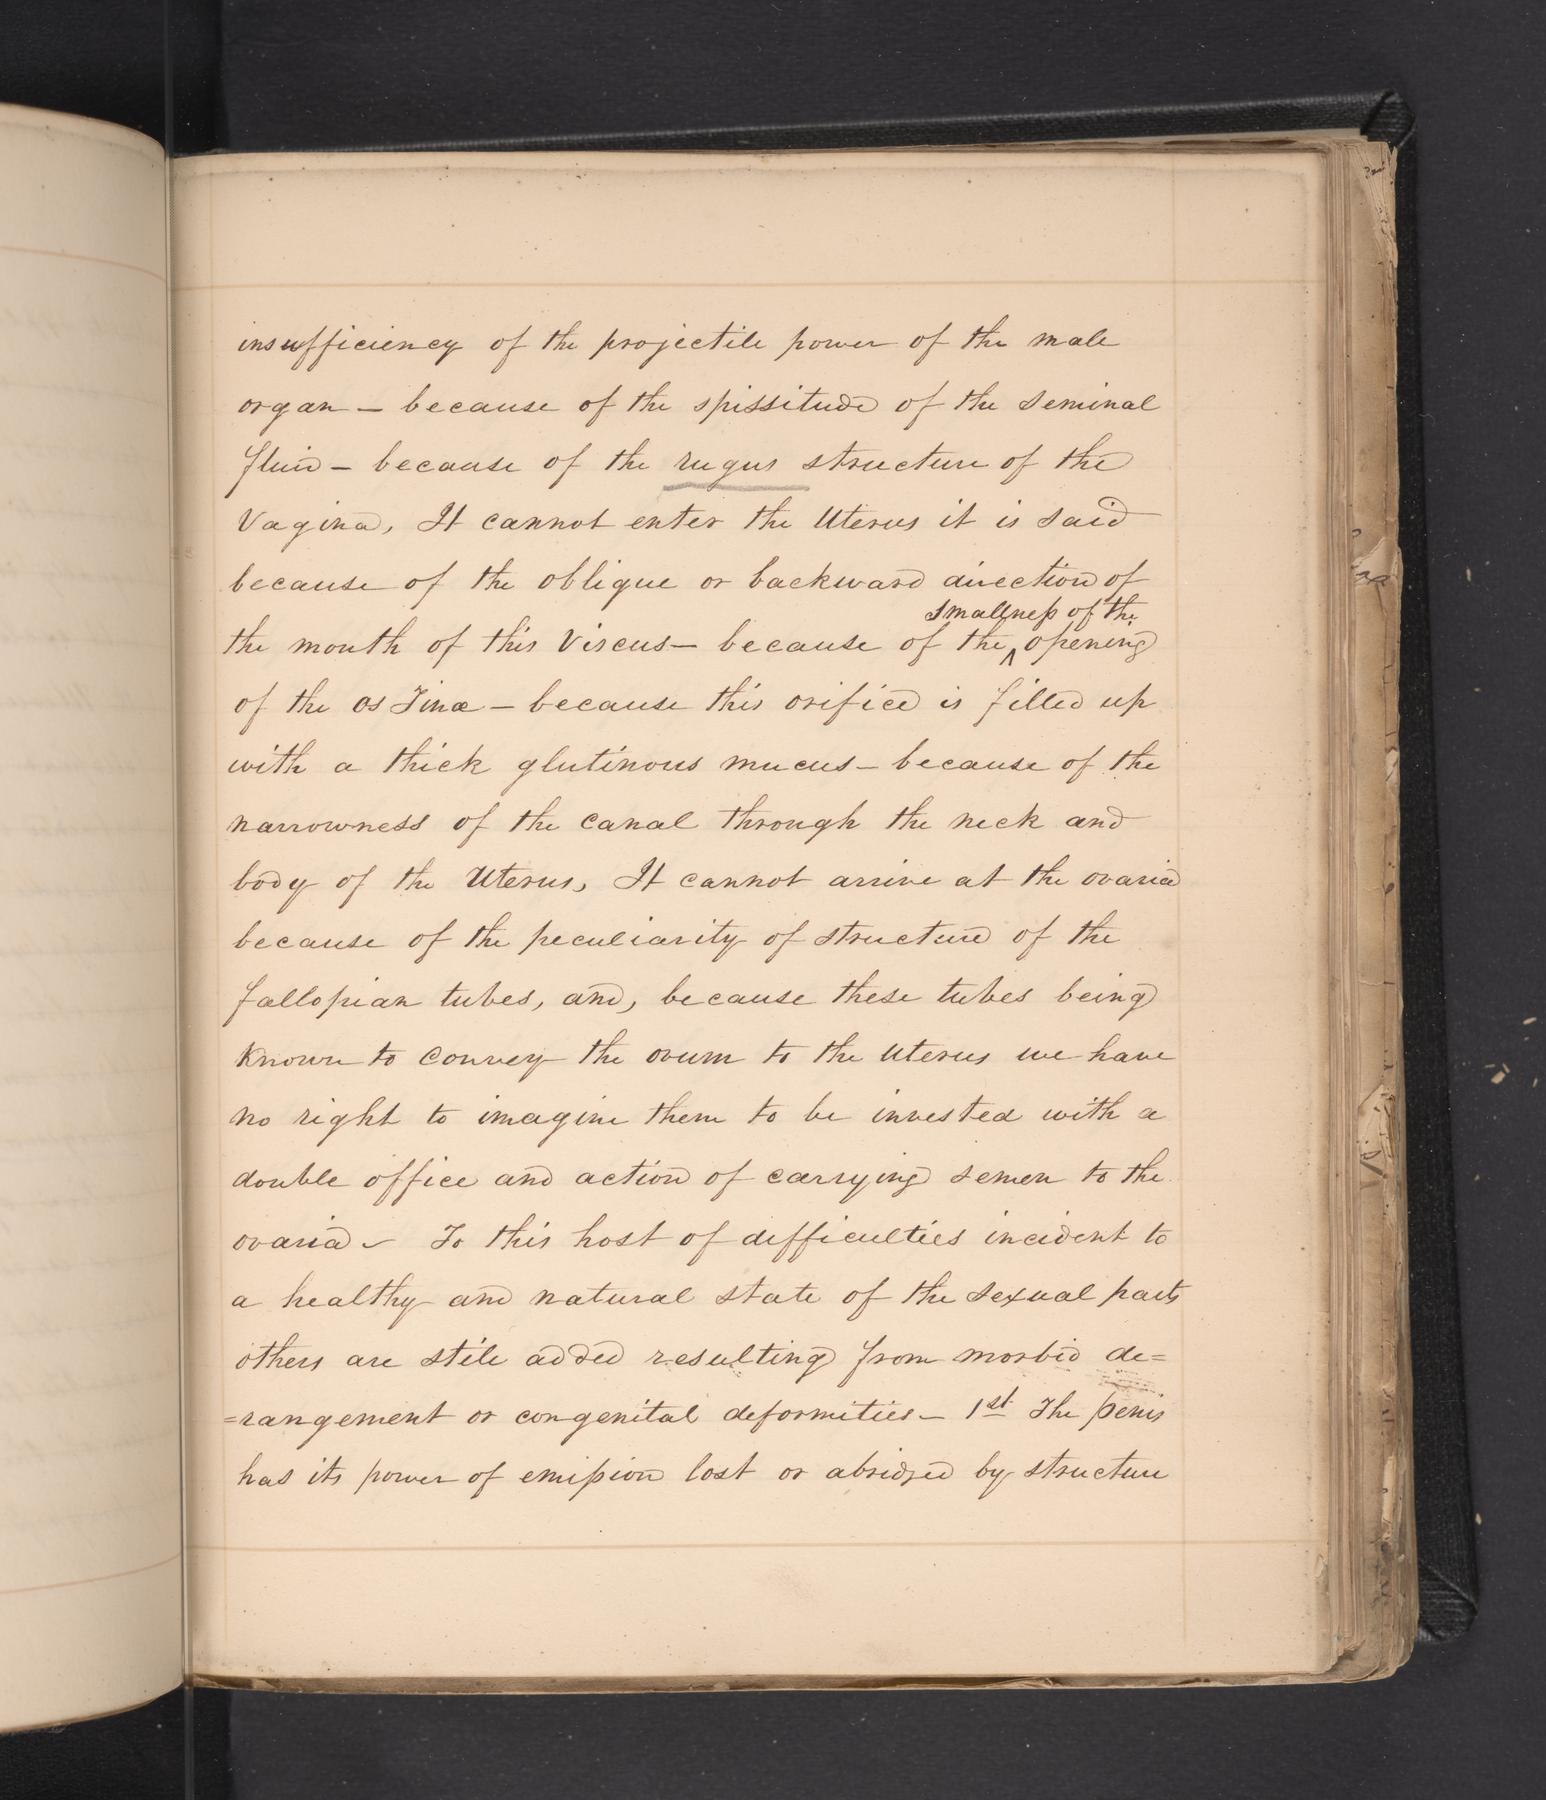 insufficiency of the projectile power of the male
organ – because of the spissitude of the seminal
fluid – because of the rugus structure of the
Vagina, It cannot enter the Uterus it is said
because of the oblique or backward direction of
smallness of the
the mouth of this Viscus – because of the ^ opening
of the os Tincæ – because this orifice is filled up
with a thick glutinous mucus – because of the
narrowness of the canal through the neck and
body of the Uterus, It cannot arrive at the ovaria
because of the peculiarity of structure of the
fallopian tubes, and, because these tubes being
known to convey the ovum to the Uterus we have
no right to imagine them to be invested with a
double office and action of carrying semen to the
ovaria – To this host of difficulties incident to
a healthy and natural state of the sexual parts
others are stile added resulting from morbid de=
=rangement or congenital deformities – 1st The penis
has its power of emission lost or abridged by structure